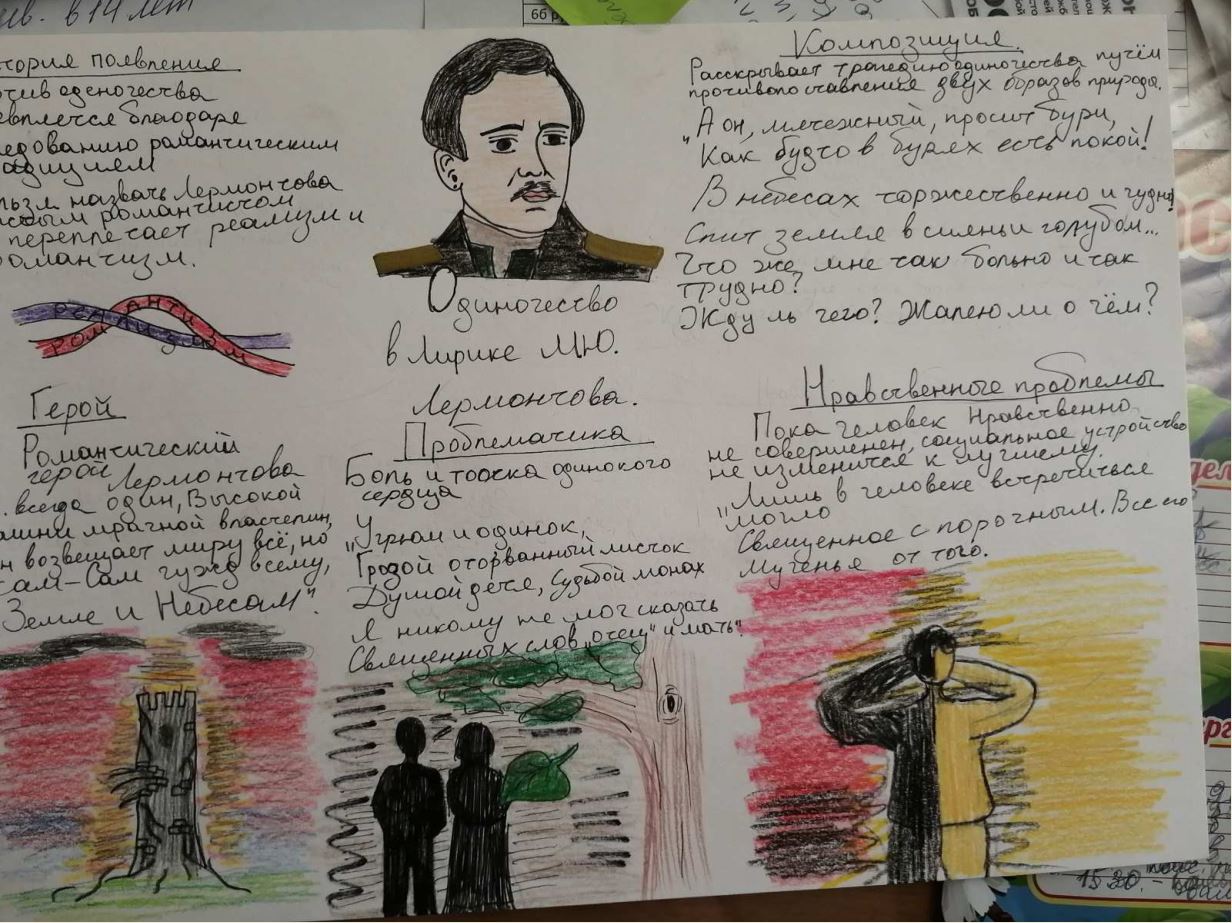 ив. в 14 лет
тория появления
отив оденогества
евляется благодаре
ледованию романтическим
адицием
льзя назвать Лермонтова
истым романтистом
переплетает реализм и
романтизм.
РЕАЛИЗМ
РОМАНТИЗМ
Герой
Романтический
герой Лермонтова
всегда один, Высокой
ашни мрачной властелин,
н возвещает миру всё, но
сам-Сам чужд всему,
Земле и Небесам".
Одиночество
в Лирике М.Ю.
Лермонтова.
Проблематика
Боль и тоска одинокого
сердца
"Угрюм и одинок,
Грозой оторванный листок
Душой дитя, Судьбой монах
Я никому не мог сказать
Священных слов „отец" и мать".
Композиция.
Расскрывает трагедию одиночества путём
противопоставления двух образов природы.
"А он, мятежный, просит бури,
"Как будто в бурях есть покой!
В небесах торжественно и чудно!
Спит земля в сияньи голубом...
Что же, мне так больно и так
трудно?
Жду ль чего? Жалею ли о чём?
Нравственные проблемы
Пока человек Нравственно
не совершенен, социальное устройство
не изменится к лучшему.
"Лишь в человеке встречиться
могло
Священное с порочным. Все его
Мученье от того.
15 30.-